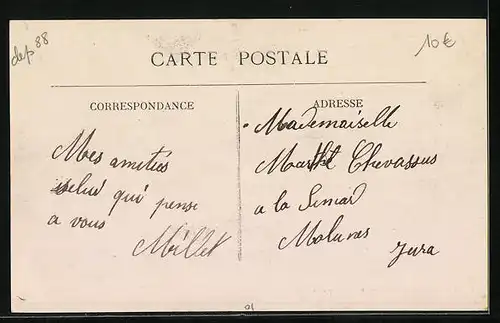 dep 88
10€
CARTE POSTALE
CORRESPONDANCE
Mes amitiés
celui qui pense
a vous
Millet
ADRESSE
Mademoiselle
Marthe Chevassus
a la
Jura